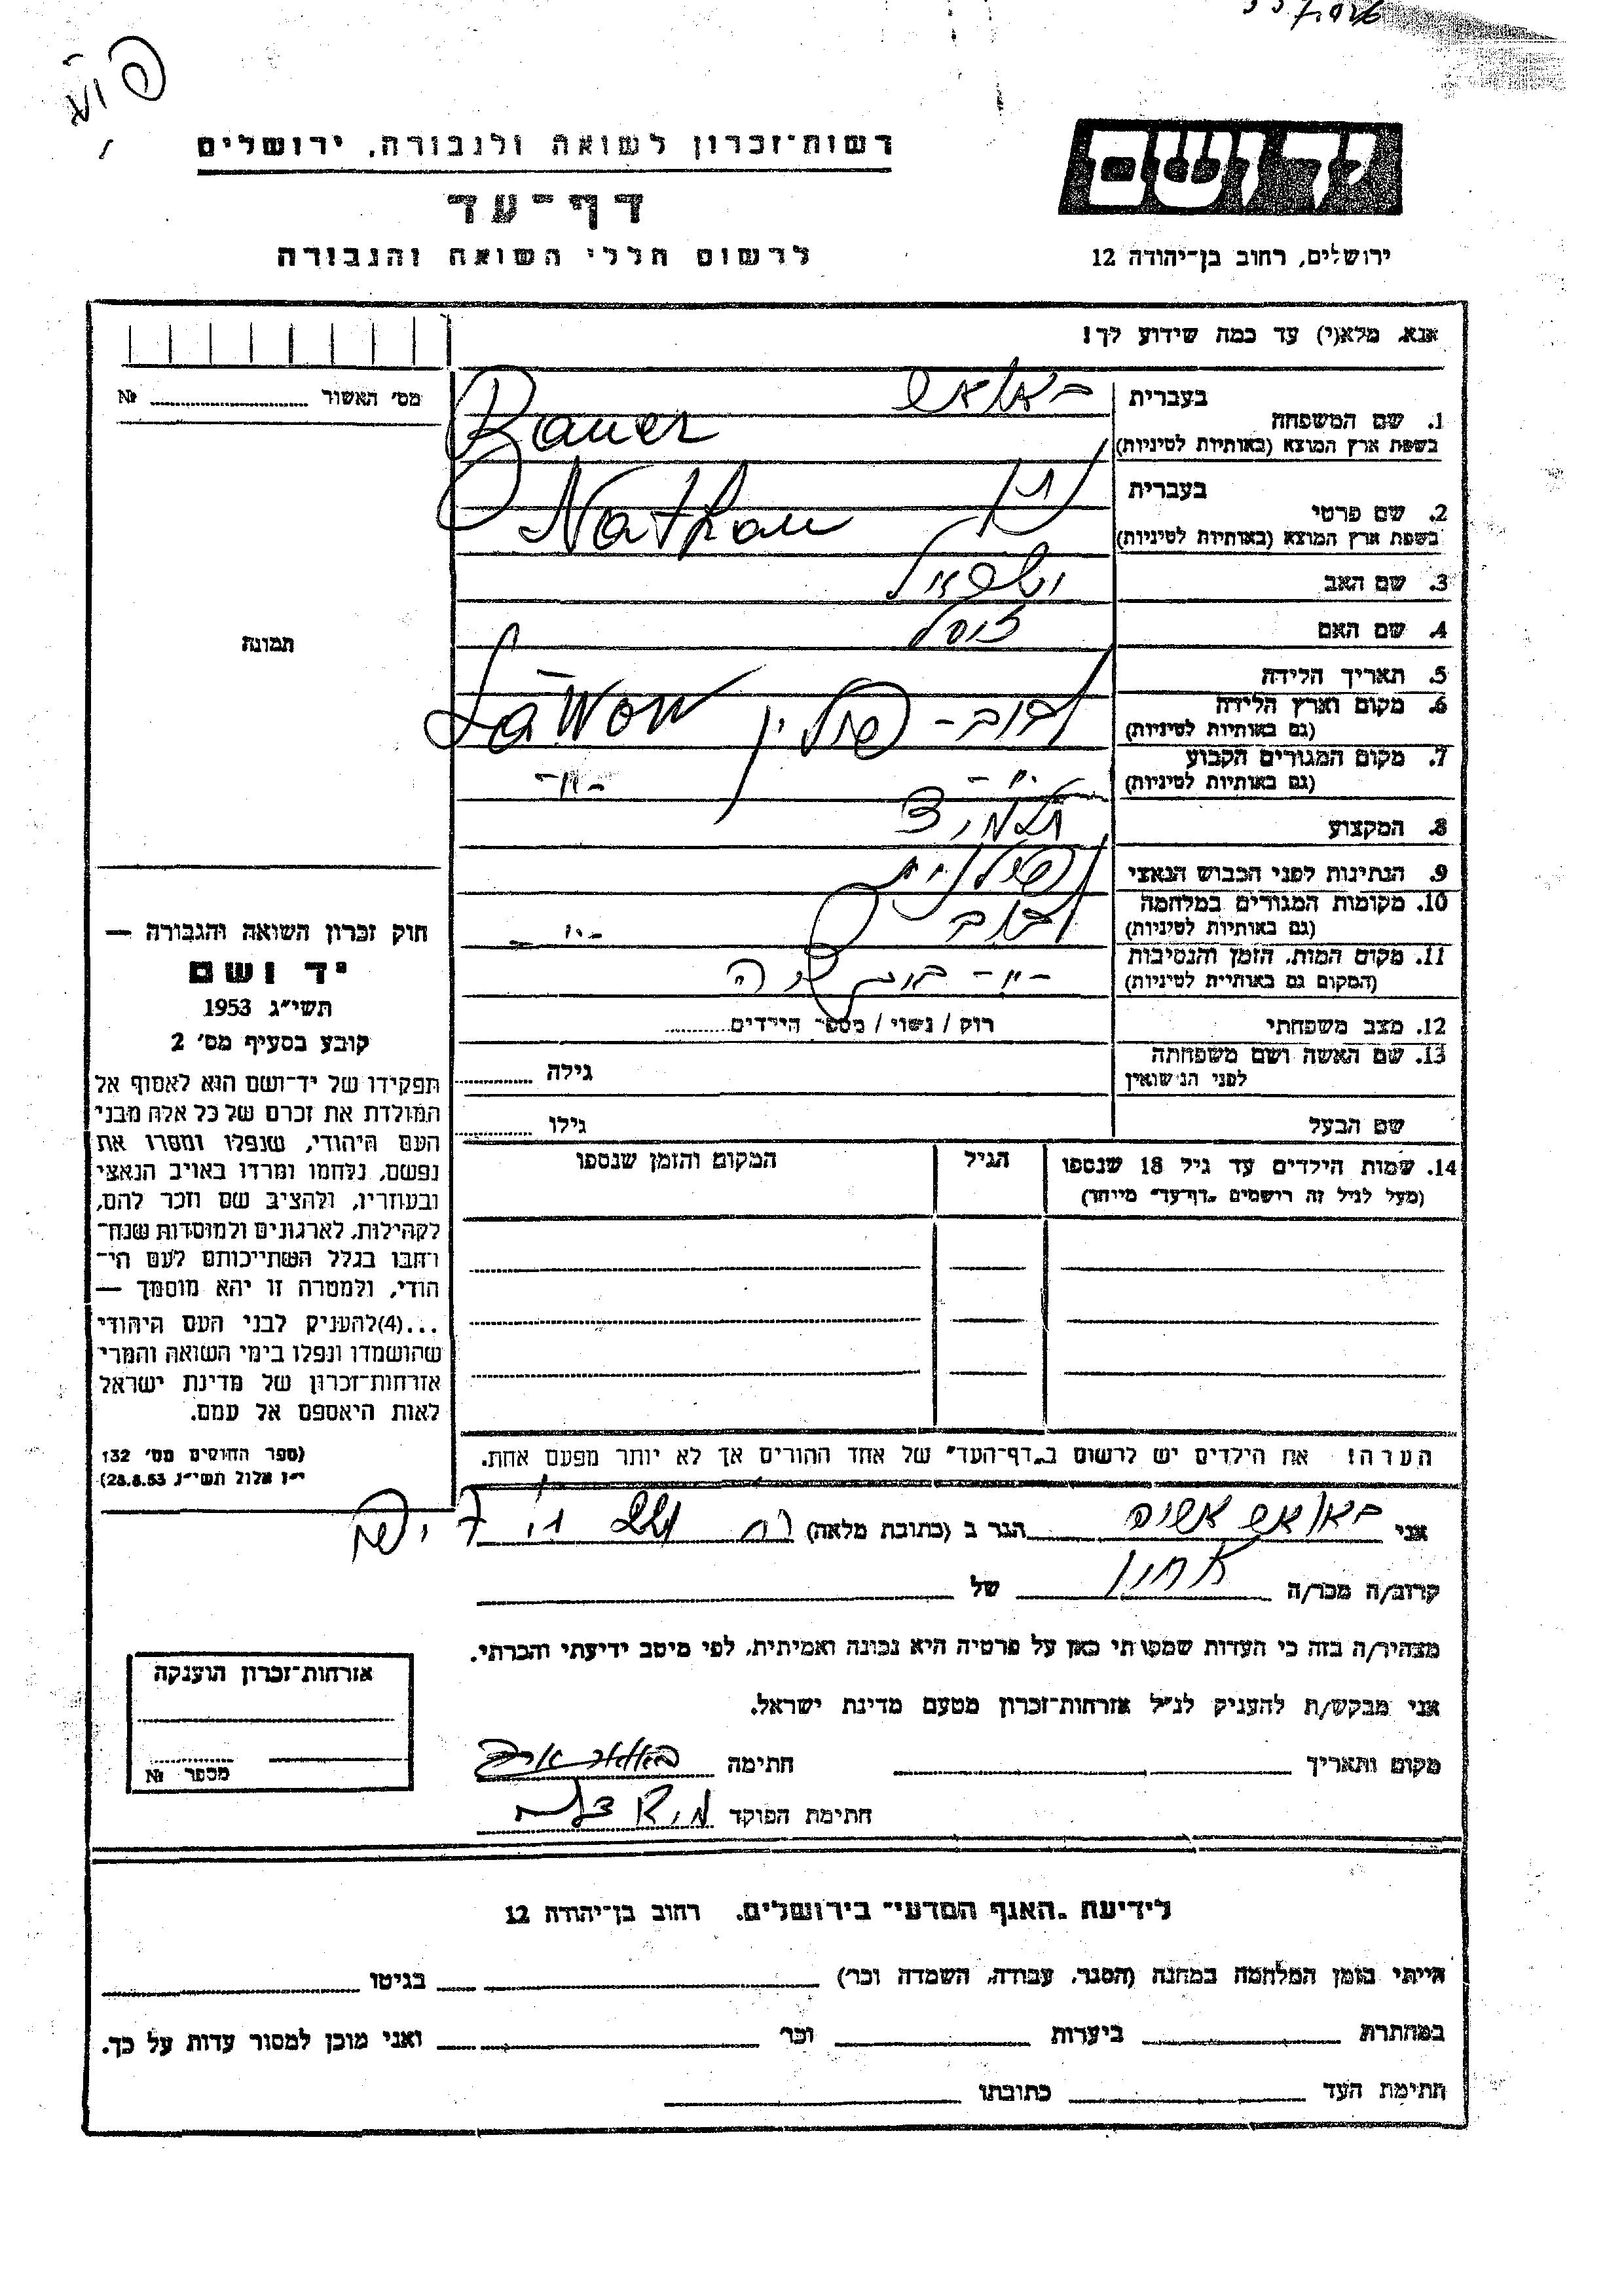 יד ושם
ירושלים, רחוב בן־יהודה 12
רשות־זכרון לשואה ולגבורה, ירושלים
דף־עד
לרשום חללי השואה והגבורה
אנא, מלא(י) עד כמה שידוע לך!
מס׳ האשור № ........
1. שם המשפחה
בעברית באואר
בשפת ארץ המוצא (באותיות לטיניות) Bauer
2. שם פרטי
בעברית נתן
בשפת ארץ המוצא (באותיות לטיניות) Nathan
3. שם האב ישראל
4. שם האם
5. תאריך הלידה -
6. מקום וארץ הלידה (גם באותיות לטיניות) לבוב - פולין
7. מקום המגורים הקבוע (גם באותיות לטיניות) -"- -"-
8. המקצוע תלמיד
9. הנתינות לפני הכבוש הנאצי פולנית
10. מקומות המגורים במלחמה (גם באותיות לטיניות) לבוב -"-
11. מקום המות, הזמן והנסיבות (המקום גם באותיות לטיניות) -"-
12. מצב משפחתי רוק / נשוי / מספר הילדים........
13. שם האשה ושם משפחתה לפני הנשואין גילה ........
שם הבעל גילו ........
14. שמות הילדים עד גיל 18 שנספו הגיל המקום והזמן שנספו
(מעל לגיל זה רישמים „דף־עד״ מייחד)
הערה! את הילדים יש לרשום ב„דף־העד״ של אחד ההורים אך לא יותר מפעם אחת.
תמונה
חוק זכרון השואה והגבורה —
יד ושם
תשי״ג 1953
קובע בסעיף מס׳ 2
תפקידו של יד־ושם הוא לאסוף אל
המולדת את זכרם של כל אלה מבני
העם היהודי, שנפלו ומסרו את
נפשם, נלחמו ומרדו באויב הנאצי
ובעוזריו, ולהציב שם וזכר להם,
לקהילות, לארגונים ולמוסדות שנח־
רחבו בגלל השתייכותם לעם הי־
הודי, ולמטרה זו יהא מוסמך —
...(4)להעניק לבני העם היהודי
שהושמדו ונפלו בימי השואה והמרי
אזרחות־זכרון של מדינת ישראל
לאות היאספם אל עמם.
(ספר החוקים מס׳ 132
י״ז אלול תשי״ג 28.8.53)
אני באואר הגר ב (כתובת מלאה) רח
קרוב/ה מכר/ה של
מצהיר/ה בזה כי העדות שמסרתי כאן על פרטיה היא נכונה ואמיתית, לפי מיטב ידיעתי והכרתי.
אני מבקש/ת להעניק לנ״ל אזרחות־זכרון מטעם מדינת ישראל.
מקום ותאריך חתימה
חתימת הפוקד
אזרחות־זכרון הוענקה
מספר №
לידיעת „האגף המדעי״ בירושלים, רחוב בן־יהודה 12
הייתי בזמן המלחמה במחנה (הסגר, עבודה, השמדה וכו׳) בגיטו
במחתרת ביערות וכו׳ ואני מוכן למסור עדות על כך.
חתימת העד כתובתו